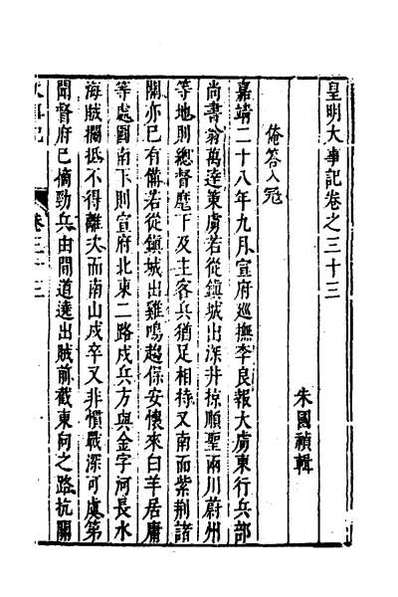 皇明大事記卷之三十三
朱國禎輯
俺答入寇
嘉靖二十八年九月宣府巡撫李良報大虜東行兵部
尚書翁萬達策虜若從鎮城出深井掠順聖兩川蔚州
等地則總督麾下及主客兵猶足相持又南而紫荆諸
關亦已有備若從鎮城出雞鳴趨保安懷來白羊居庸
等處圖南下則宣府北東二路戍兵方與金字河長水
海賊搁抵不得離次而南山戍卒又非慣戰深可虞第
聞督府已摘勁兵由間道遶出賊前截東向之路抗關
卷三十三